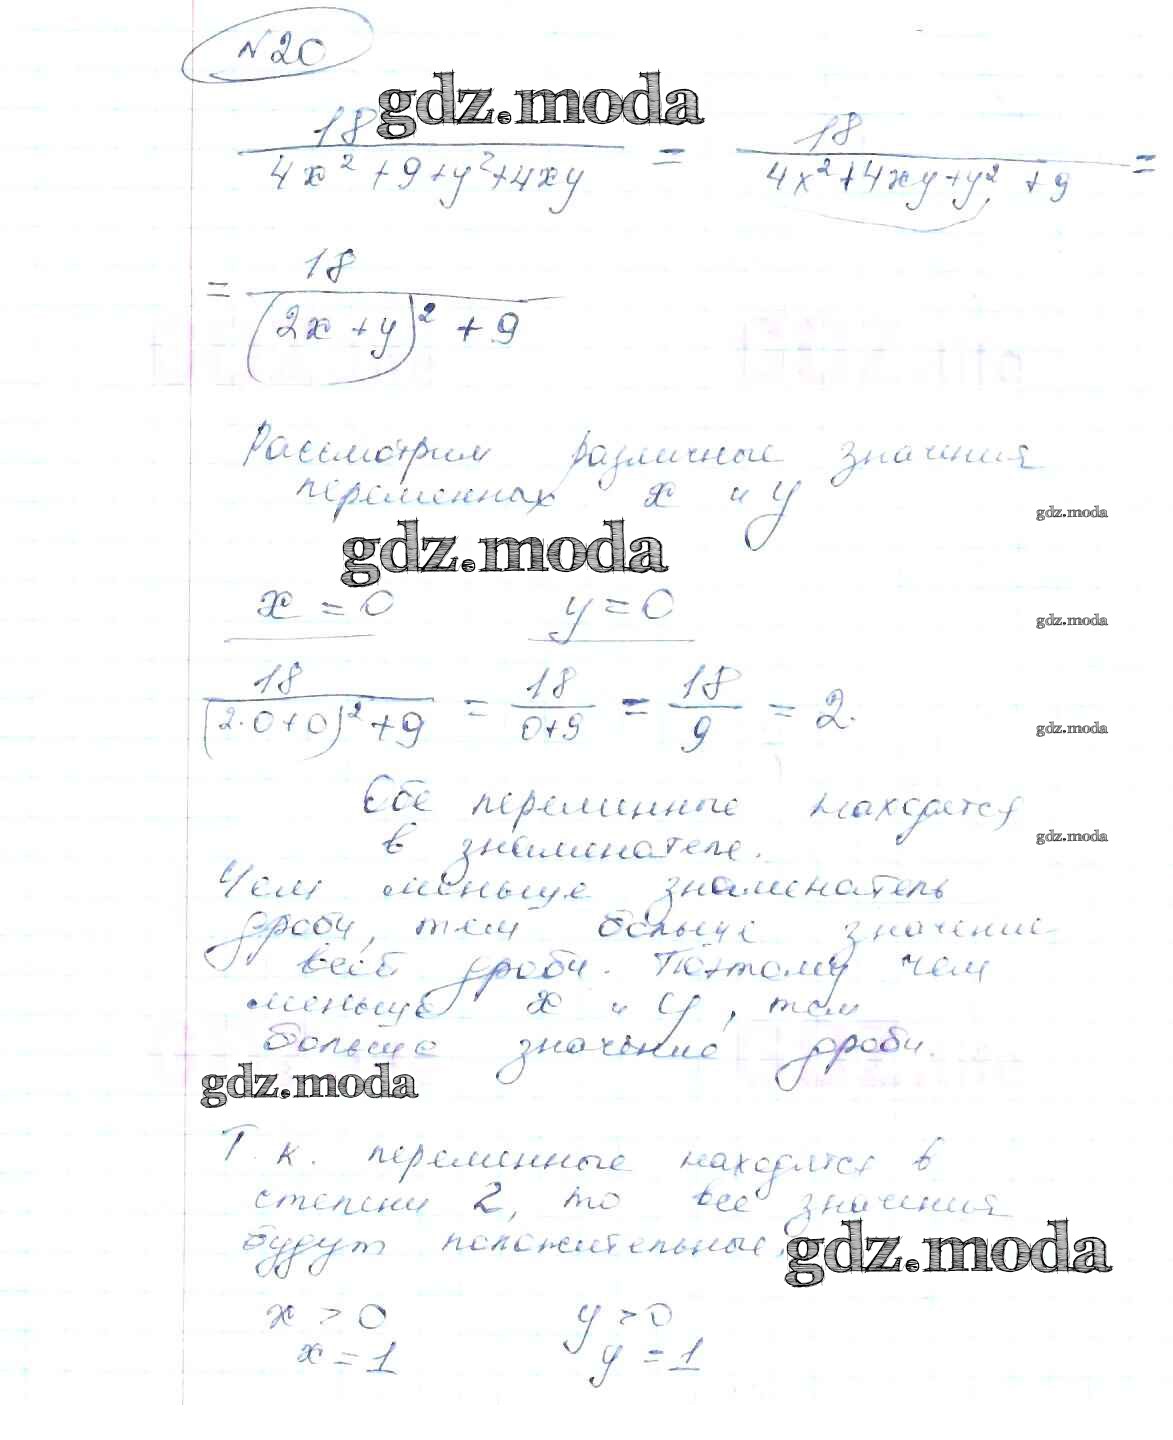 №20
gdz.moda
18 / (4x² + 9 + y² + 4xy) = 18 / (4x² + 4xy + y² + 9) =
= 18 / ((2x + y)² + 9)
Рассмотрим различные значения
переменных x и y
gdz.moda
gdz.moda
x = 0 y = 0
gdz.moda
18 / ((2·0+0)² + 9) = 18 / (0+9) = 18 / 9 = 2.
gdz.moda
Обе переминные находятся
в знаминателе.
gdz.moda
Чем меньше знаменатель
дроби, тем больше значение
всей дроби. Поэтому чем
меньше x и y, тем
больше значение дроби.
gdz.moda
Т.к. переминные находятся в
степени 2, то все значения
будут положительные.
gdz.moda
x > 0 y > 0
x = 1 y = 1